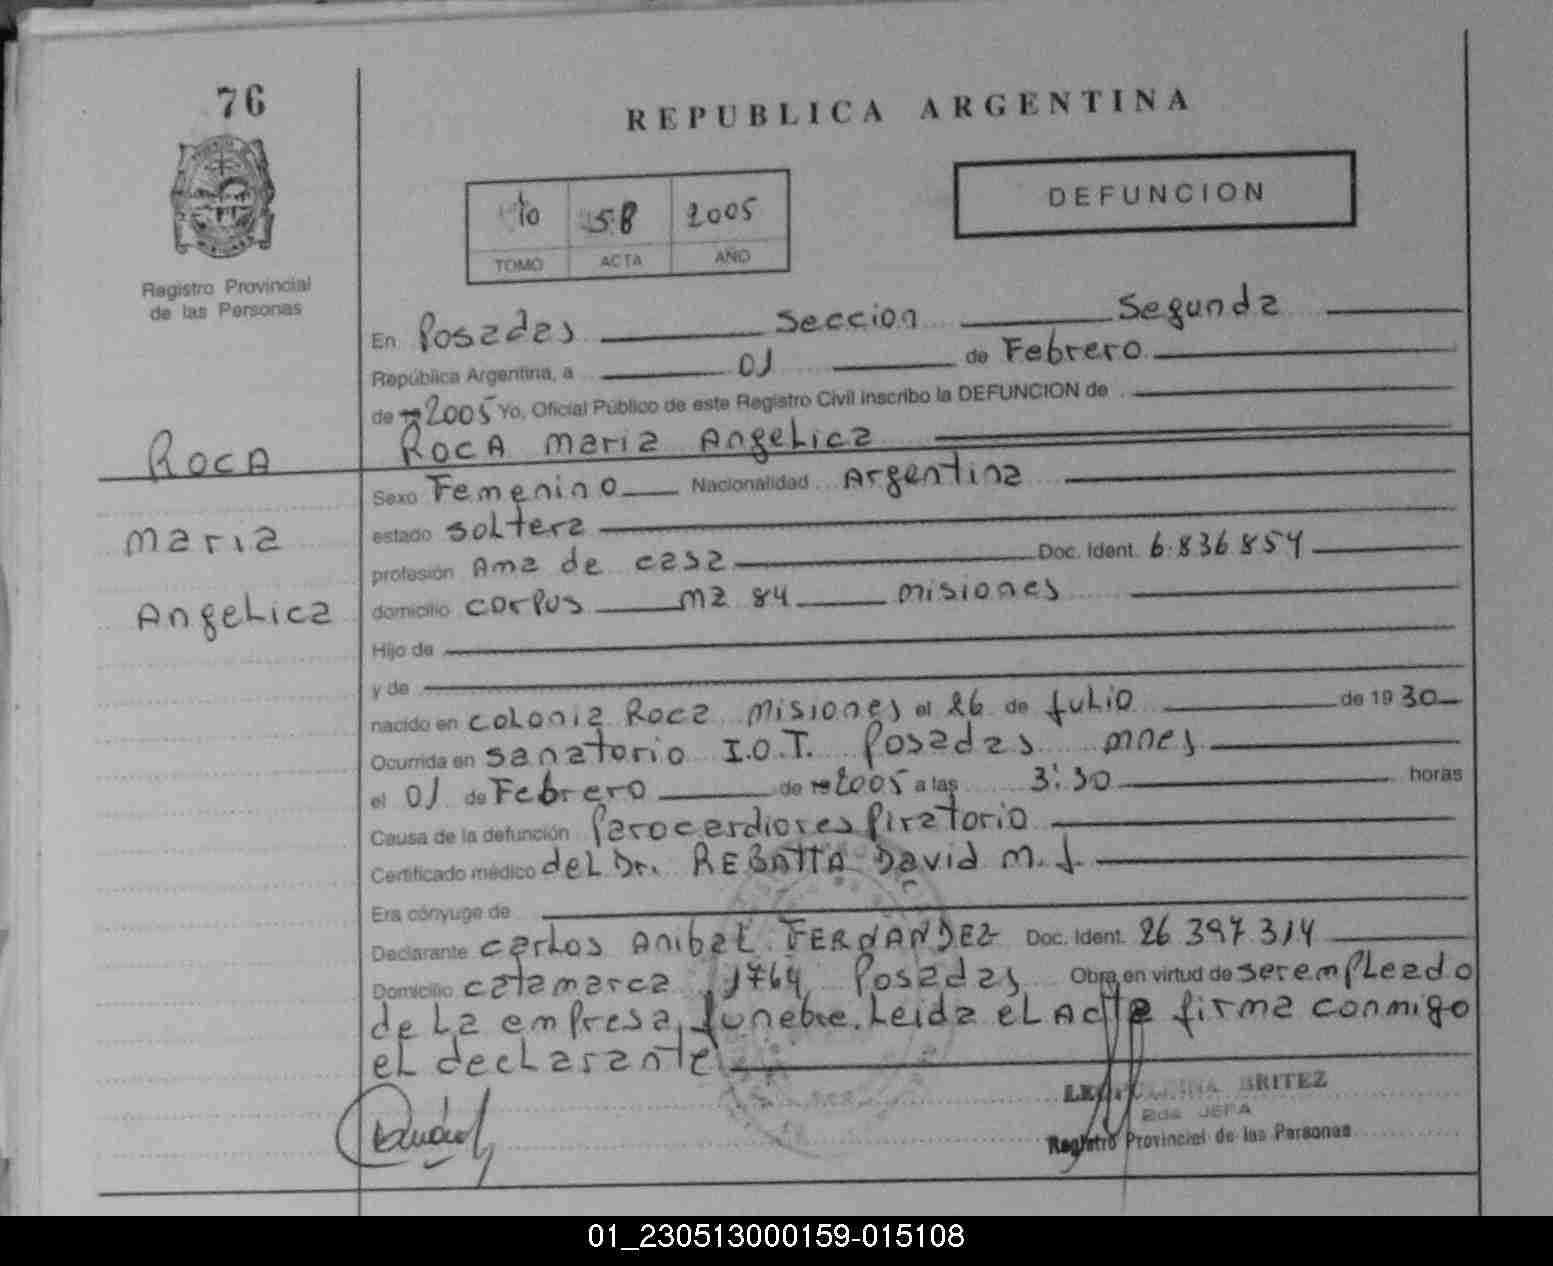 76
REPUBLICA ARGENTINA
to 58 2005
TOMO ACTA AÑO
DEFUNCION
Registro Provincial
de las Personas
En Posadas Seccion Segunda
República Argentina, a 01 de Febrero
de 2005 Yo, Oficial Público de este Registro Civil inscribo la DEFUNCION de
ROCA Maria Angelica
Roca
Maria
Angelica
Sexo Femenino Nacionalidad Argentina
estado soltera
profesión Ama de casa Doc. Ident. 6.836.854
domicilio corpus mz 84 misiones
Hijo de
y de
nacido en colonia Roca misiones el 26 de Julio de 1930
Ocurrida en sanatorio I.O.T. Posadas mnes
el 01 de Febrero de 2005 a las 3:30 horas
Causa de la defunción Parocardiorespiratorio
Certificado médico del Dr. REBATTA David M. J.
Era cónyuge de
Declarante Carlos Anibal FERNANDEZ Doc. Ident. 26.397.314
Domicilio catamarca 1764 Posadas Obra en virtud de ser empleado
de la empresa funebre. Leida el Acta firma conmigo
el declarante
BRITEZ
2da JEFA
Registro Provincial de las Personas
01_230513000159-015108